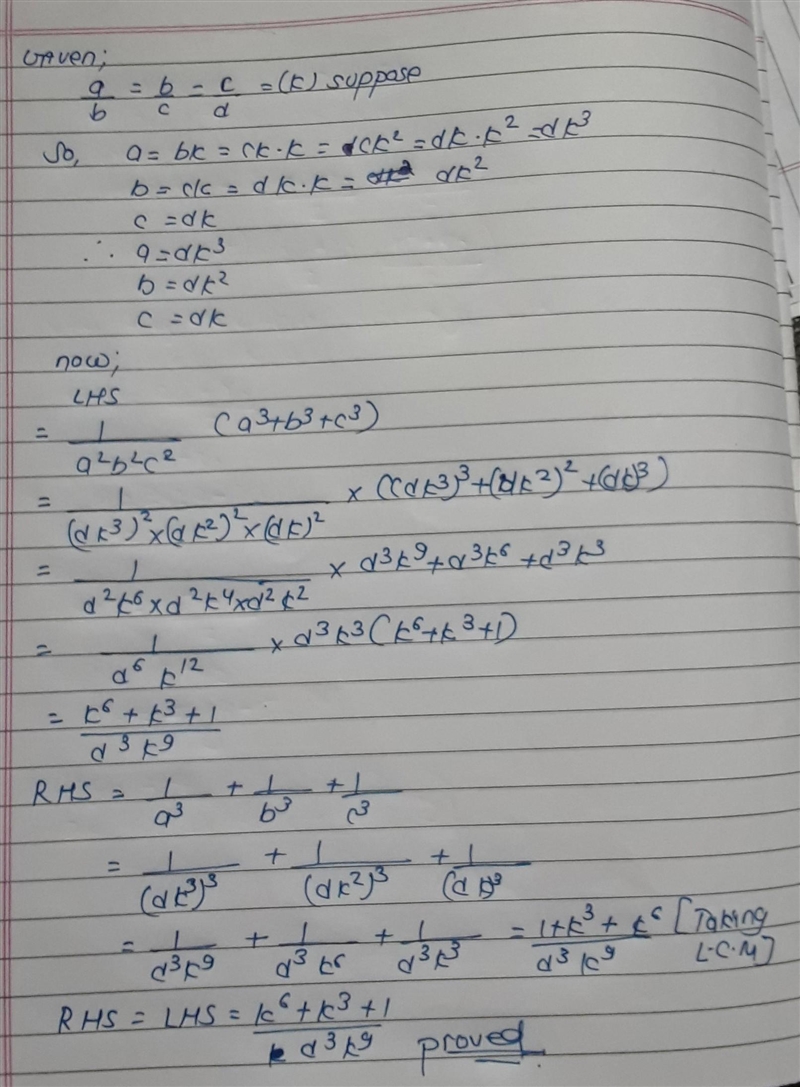 Given;
a/b = b/c = c/d = (k) suppose
So, a = bk = ck·k = ck² = dk·k² = dk³
b = ck = dk·k = dk²
c = dk
∴ a = dk³
b = dk²
c = dk
now;
LHS
= 1/(a²b²c²) (a³+b³+c³)
= 1/((dk³)²×(dk²)²×(dk)²) × ((dk³)³+(dk²)²+(dk)³)
= 1/(d²k⁶×d²k⁴×d²k²) × d³k⁹+d³k⁶+d³k³
= 1/(d⁶ k¹²) × d³k³(k⁶+k³+1)
= (k⁶+k³+1)/(d³k⁹)
RHS = 1/a³ + 1/b³ + 1/c³
= 1/(dk³)³ + 1/(dk²)³ + 1/(dk)³
= 1/(d³k⁹) + 1/(d³k⁶) + 1/(d³k³) = (1+k³+k⁶)/(d³k⁹) [Taking L.C.M]
RHS = LHS = (k⁶+k³+1)/(d³k⁹) proved.